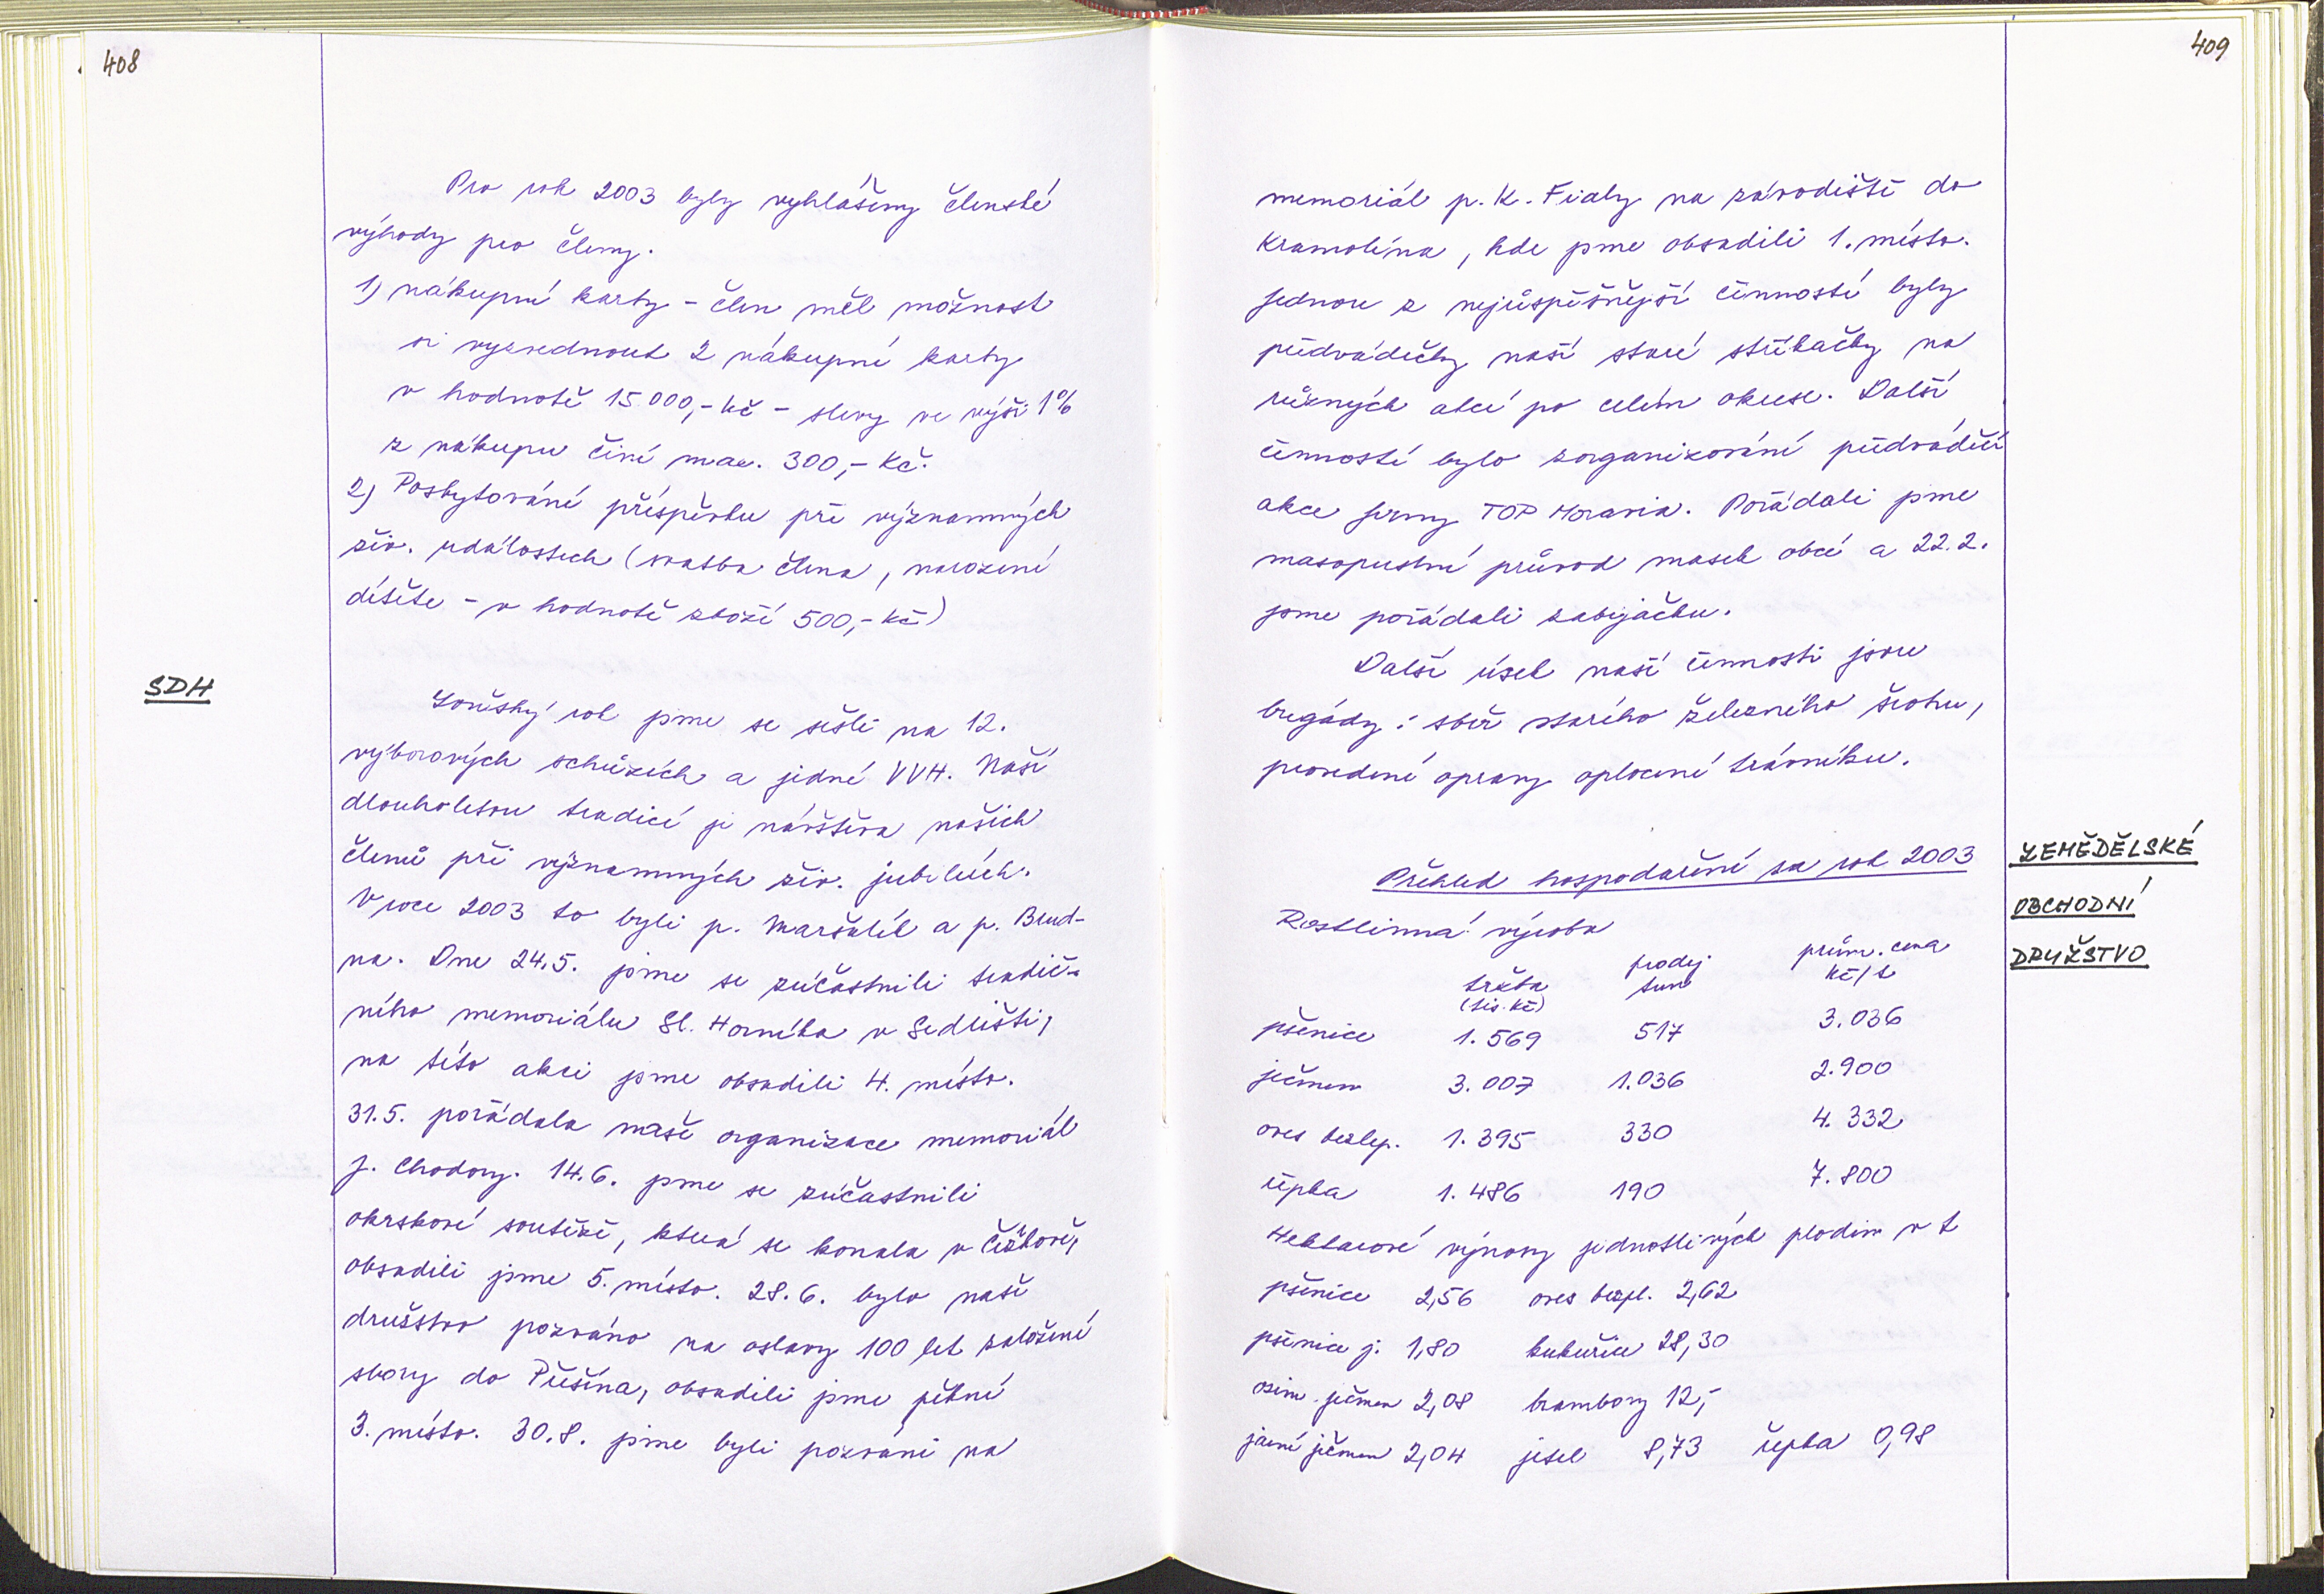 408
Pro rok 2003 byly vyhlášeny členské
výhody pro členy.
1) nákupní karty - člen měl možnost
si vyzvednout 2 nákupní karty
v hodnotě 15.000,- kč - slevy ve výši 1%
z nákupu činí max. 300,- Kč.
2) Poskytování příspěvku při významných
živ. událostech (svatba člena, narození
dítěte - v hodnotě zboží 500,- kč)
SDH
Loňský rok jsme se sešli na 12.
výborových schůzích a jedné VVH. Naší
dlouholetou tradicí je návštěva našich
členů při významných živ. jubileích.
V roce 2003 to byli p. Maršálek a p. Brud-
na. Dne 24.5. jsme se zúčastnili tradič-
ního memoriálu Sl. Horníka v Sedlišti,
na této akci jsme obsadili 4. místo.
31.5. pořádala naše organizace memoriál
J. Chodory. 14.6. jsme se zúčastnili
okrskové soutěže, která se konala v Čížkově,
obsadili jsme 5. místo. 28.6. bylo naše
družstvo pozváno na oslavy 100 let založení
sbory do Přešína, obsadili jsme pěkné
3. místo. 30.8. jsme byli pozváni na
409
memoriál p. K. Fialy na závodiště do
Kramolína, kde jsme obsadili 1. místo.
Jednou z nejúspěšnější činností byly
předváděčky naší staré stříkačky na
různých akcí po celém okrese. Další
činností bylo zorganizování předváděcí
akce firmy TOP Moravia. Pořádali jsme
masopustní průvod masek obcí a 22.2.
jsme pořádali zabijačku.
Další úsek naší činnosti jsou
brigády: sběr starého železného šrotu,
provedení opravy oplocení trávníku.
ZEMĚDĚLSKÉ
OBCHODNÍ
DRUŽSTVO
Přehled hospodaření za rok 2003
Rostlinná výroba
tržba (tis. kč) prodej tun prům. cena kč/t
pšenice 1.569 517 3.036
ječmen 3.007 1.036 2.900
oves bezlep. 1.395 330 4.332
řepka 1.486 190 7.800
Hektarové výnosy jednotlivých plodin v t
pšenice 2,56 oves bezpl. 2,62
pšenice j. 1,80 kukuřice 28,30
ozim. ječmen 2,08 brambory 12,-
jarní ječmen 2,04 jetel 8,73 řepka 0,98